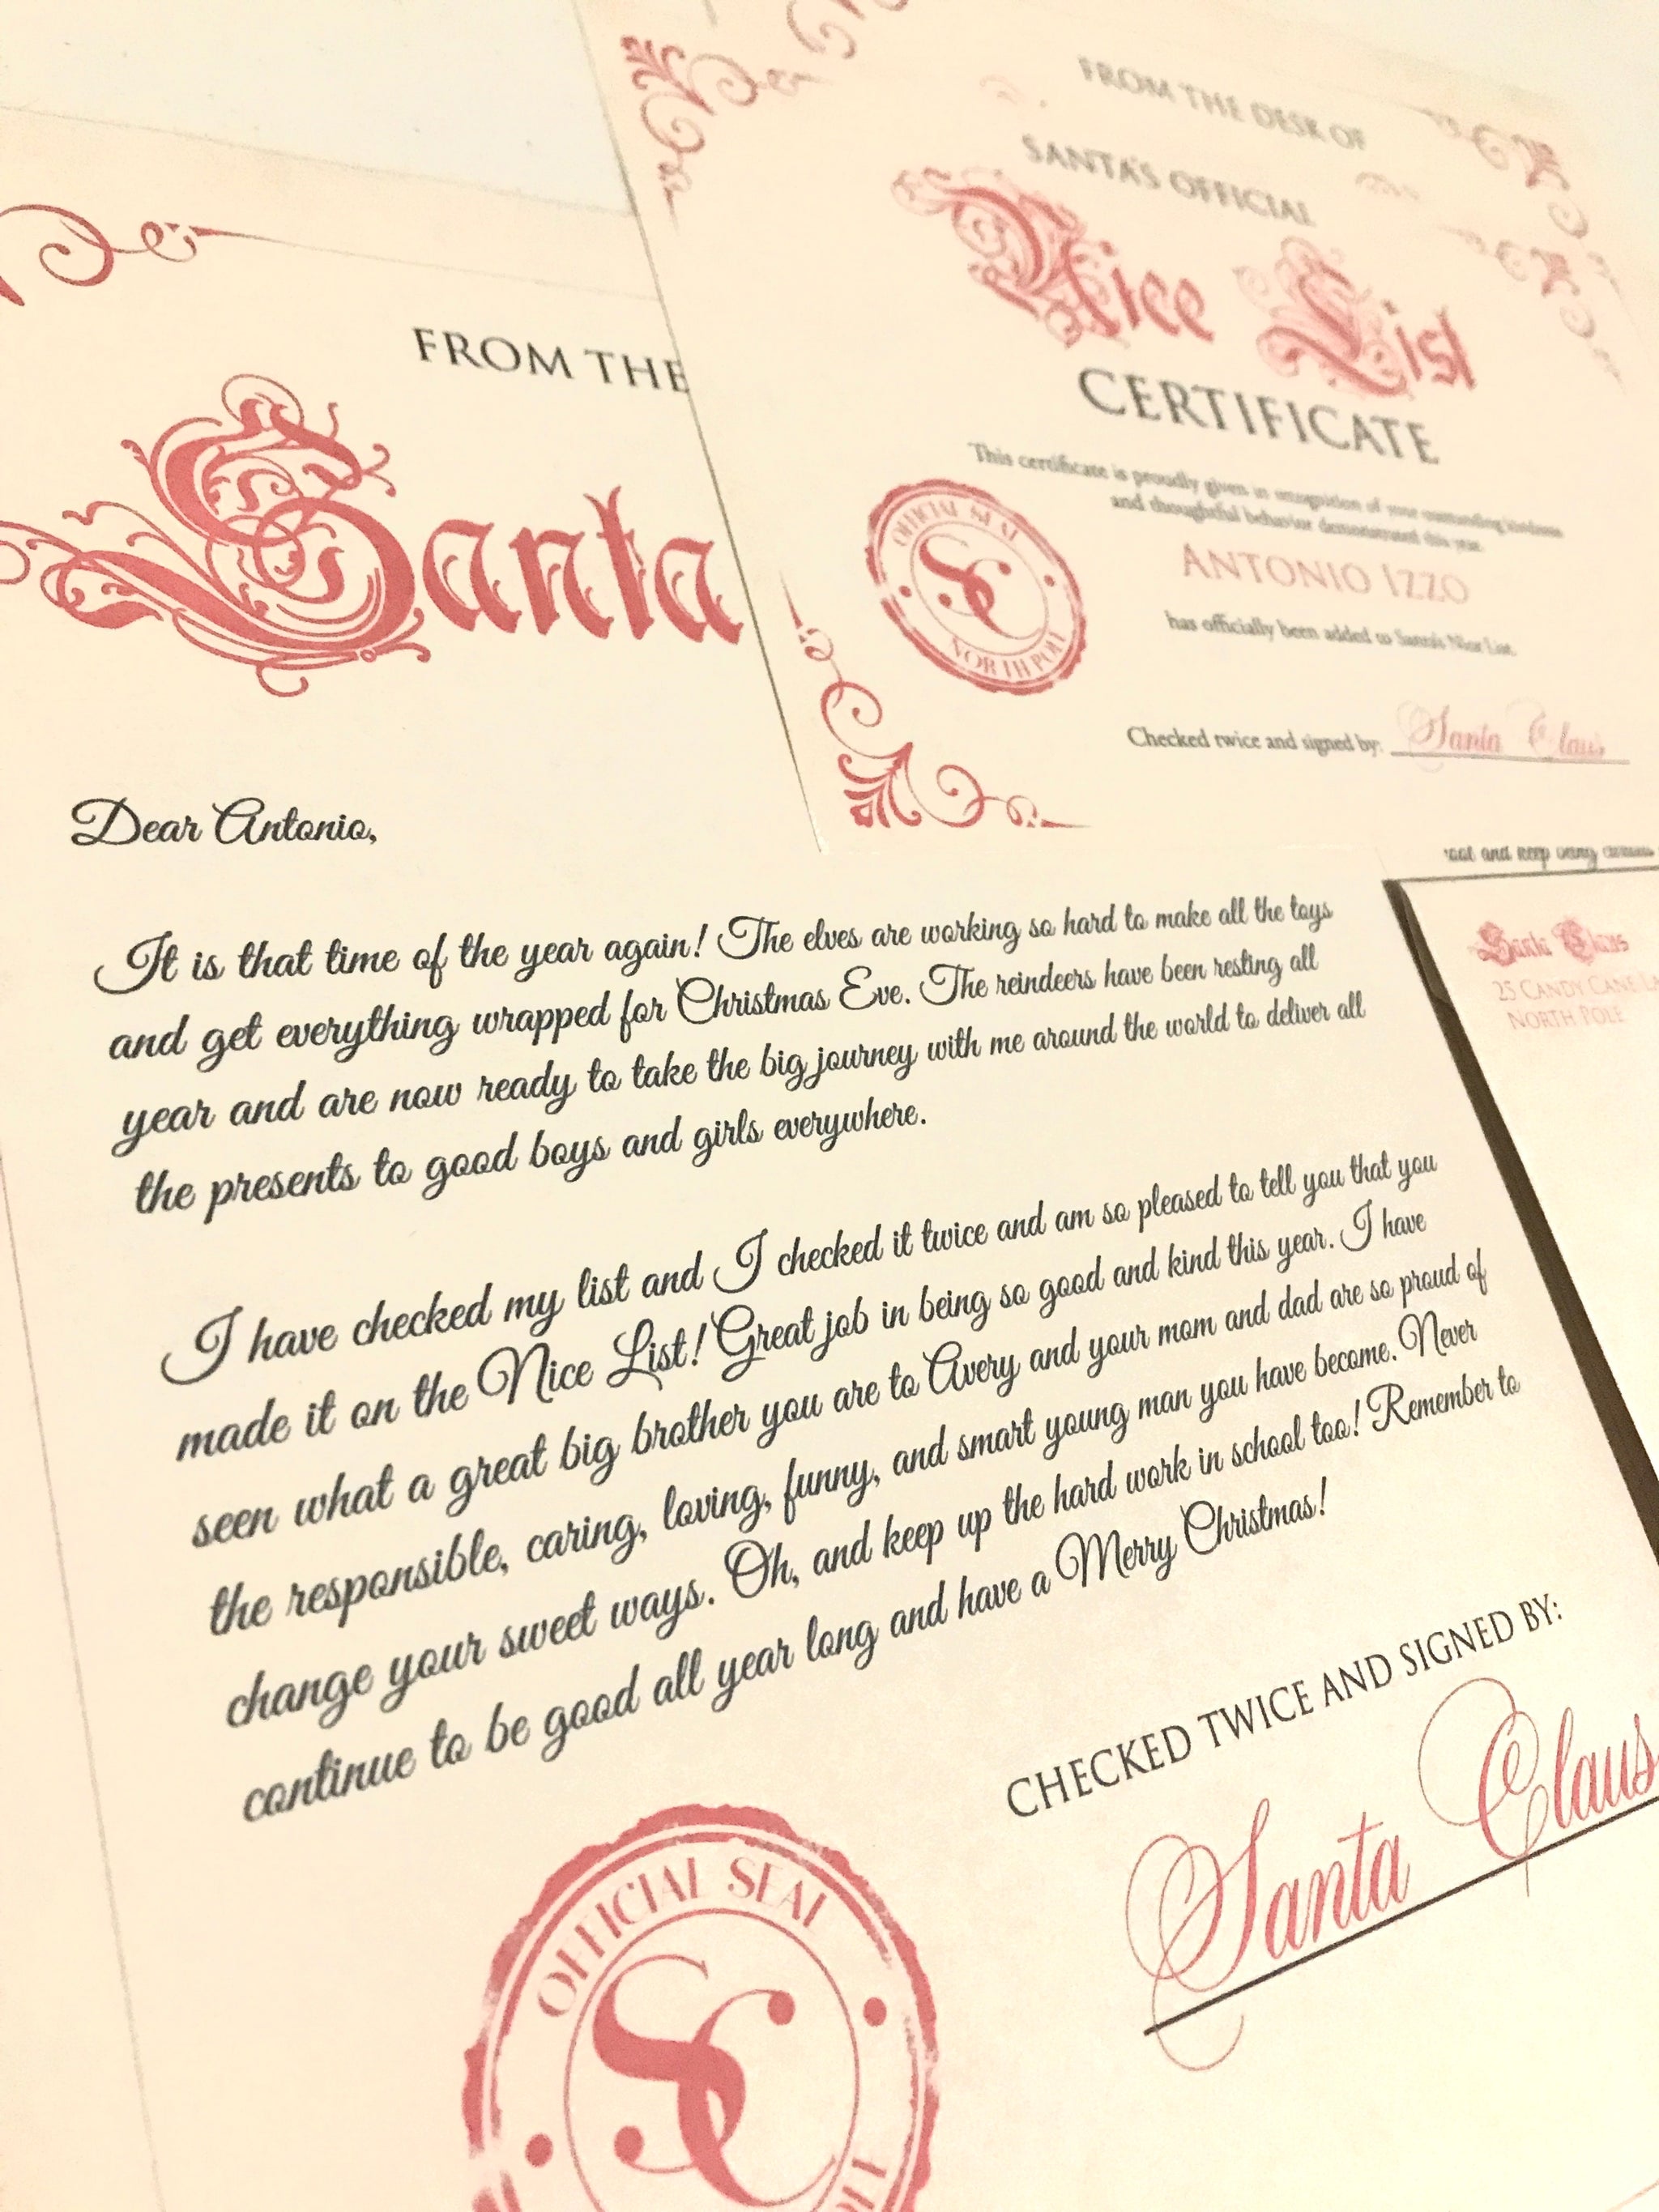 FROM THE
Santa
Dear Antonio,
It is that time of the year again! The elves are working so hard to make all the toys
and get everything wrapped for Christmas Eve. The reindeers have been resting all
year and are now ready to take the big journey with me around the world to deliver all
the presents to good boys and girls everywhere.
I have checked my list and I checked it twice and am so pleased to tell you that you
made it on the Nice List! Great job in being so good and kind this year. I have
seen what a great big brother you are to Avery and your mom and dad are so proud of
the responsible, caring, loving, funny, and smart young man you have become. Never
change your sweet ways. Oh, and keep up the hard work in school too! Remember to
continue to be good all year long and have a Merry Christmas!
CHECKED TWICE AND SIGNED BY:
Santa Claus
OFFICIAL SEAL
SC
FROM THE DESK OF
SANTA'S OFFICIAL
Nice List
CERTIFICATE
This certificate is proudly given in recognition of your outstanding kindness
and thoughtful behavior demonstrated this year.
ANTONIO IZZO
has officially been added to Santa's Nice List.
Checked twice and signed by: Santa Claus
OFFICIAL SEAL
SC
NORTH POLE
and keep being
Santa Claus
25 CANDY CANE
NORTH POLE